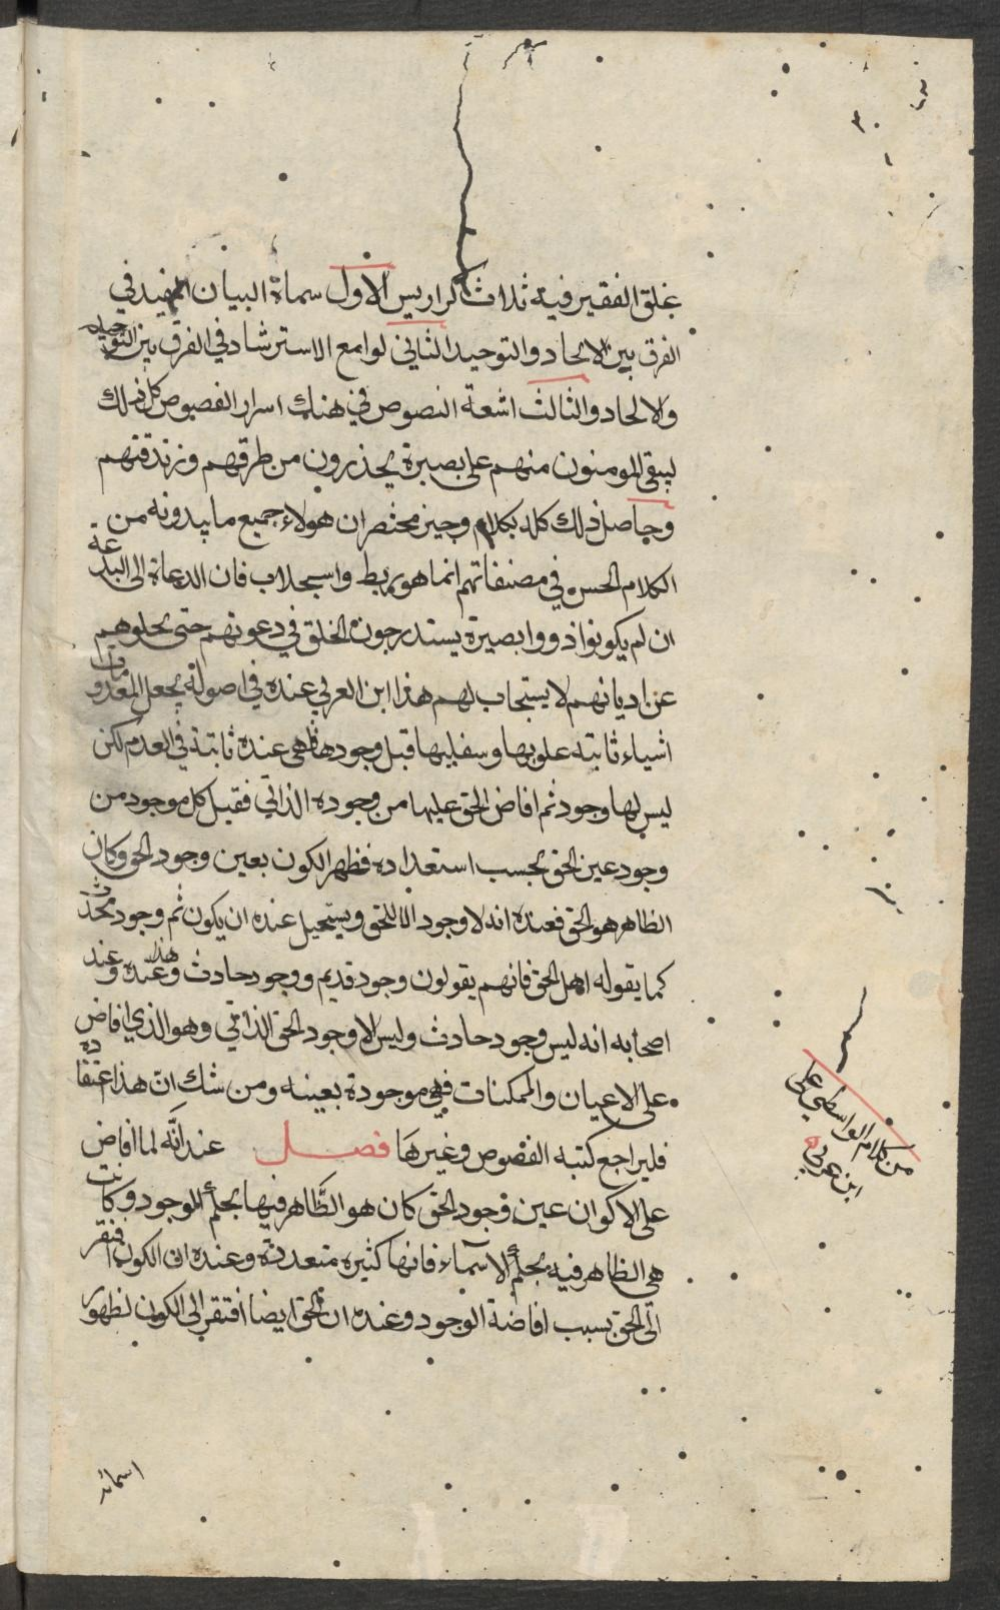 غلق الفقير فيه ثلاث كراريس الاول سماة البيان المفيد في
الفرق بين الالحاد والتوحيد الثاني لوامع الاسترشاد في الفرق بين التوحيد
والالحاد والثالث اشعة النصوص في هتك اسرار الفصوص كل ذلك
ليبقى المومنون منهم على بصيرة يحذرون من طرقهم وزندقتهم
وحاصل ذلك كله بكلام وجيز مختصر ان هولاء جميع ما يبدونه من
الكلام الحسن في مصنفاتهم انما هو ربط واستجلاب فان الدعاة الى البدعة
ان لم يكونوا ذووا بصيرة يستدرجون الخلق في دعوتهم حتى يحلوهم
عن اديانهم لا يستجاب لهم هذا ابن العربي عنده في اصوله يجعل المعدومات
اشياء ثابته علويها وسفليها قبل وجودها فهي عنده ثابتة في العدم لكن
ليس لها وجود ثم افاض الحق عليها من وجوده الذاتي فقبل كل موجود من
وجود عين الحق بحسب استعداده فظهر الكون بعين وجود الحق وكان
الظاهر هو الحق فعنده انه لا وجود الا للحق ويستحيل عنده ان يكون ثم وجود محدث
كما يقوله اهل الحق فانهم يقولون وجود قديم ووجود حادث وعند هذا وعند
اصحابه انه ليس وجود حادث وليس الا وجود الحق الذاتي وهو الذي افاض
على الاعيان والممكنات فهي موجودة بعينه ومن شك ان هذا اعتقاده
فليراجع كتبه الفصوص وغيرها فصل عند انه لما افاض
على الاكوان عين وجود الحق كان هو الظاهر فيها بحكم الوجود وكانت
هي الظاهر فيه بحكم الاسماء فانها كثيره متعددة وعنده ان الكون افتقر
الى الحق بسبب افاضة الوجود وعنده ان الحق ايضا افتقر الى الكون لظهور
اسمائه
من كلام الواسطي على
ابن عربي